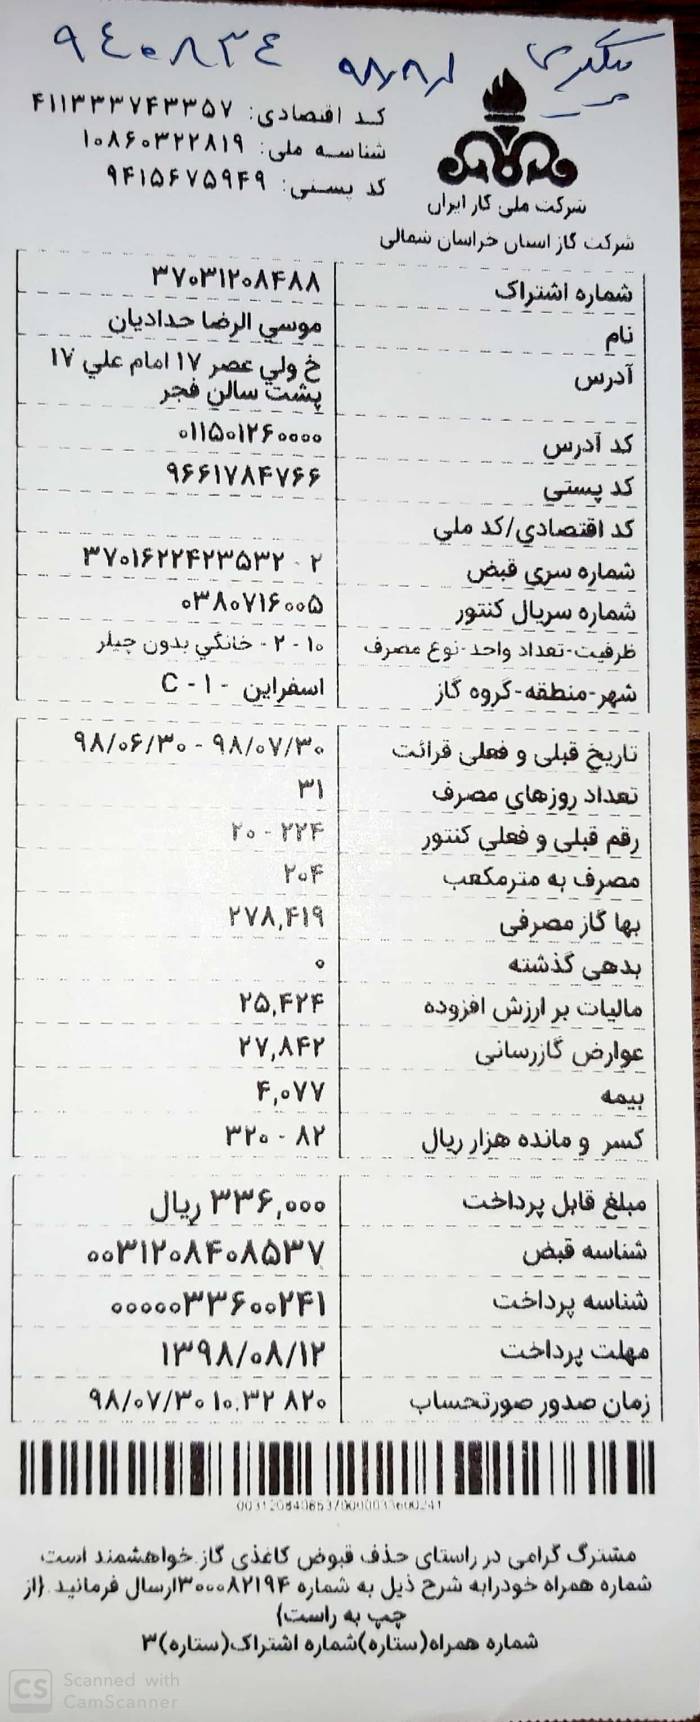 پیگیری ۹۸/۸/۸ ۹۴۰۸۳۴
کد اقتصادی: ۴۱۱۳۳۳۷۴۳۳۵۷
شناسه ملی: ۱۰۸۶۰۳۲۲۸۱۹
کد پستی: ۹۴۱۵۶۷۵۹۴۹
شرکت ملی گاز ایران
شرکت گاز استان خراسان شمالی
شماره اشتراک ۳۷۰۳۱۲۰۸۴۸۸
نام موسي الرضا حداديان
آدرس خ ولي عصر ۱۷ امام علي ۱۷
پشت سالن فجر
کد آدرس ۰۱۱۵۰۱۲۶۰۰۰۰
کد پستي ۹۶۶۱۷۸۴۷۶۶
کد اقتصادي/کد ملي
شماره سري قبض ۲ - ۳۷۰۱۶۲۲۴۲۳۵۳۲
شماره سریال کنتور ۰۳۸۰۷۱۶۰۰۵
ظرفیت-تعداد واحد-نوع مصرف ۱۰ - ۲ - خانگي بدون چيلر
شهر-منطقه-گروه گاز اسفراين - ۱ - C
تاریخ قبلی و فعلی قرائت ۹۸/۰۶/۳۰ - ۹۸/۰۷/۳۰
تعداد روزهای مصرف ۳۱
رقم قبلی و فعلی کنتور ۲۰ - ۲۲۴
مصرف به مترمکعب ۲۰۴
بها گاز مصرفی ۲۷۸,۴۱۹
بدهی گذشته ۰
مالیات بر ارزش افزوده ۲۵,۴۲۴
عوارض گازرسانی ۲۷,۸۴۲
بیمه ۴,۰۷۷
کسر و مانده هزار ریال ۳۲۰ - ۸۲
مبلغ قابل پرداخت ۳۳۶,۰۰۰ ریال
شناسه قبض ۰۰۳۱۲۰۸۴۰۸۵۳۷
شناسه پرداخت ۰۰۰۰۰۳۳۶۰۰۲۴۱
مهلت پرداخت ۱۳۹۸/۰۸/۱۲
زمان صدور صورتحساب ۹۸/۰۷/۳۰ ۱۰:۳۲ ۸۲۰
00312084085370000033600241
مشترک گرامی در راستای حذف قبوض کاغذی گاز خواهشمند است
شماره همراه خودرابه شرح ذیل به شماره ۳۰۰۰۸۲۱۹۴ارسال فرمائید {از
چپ به راست}
شماره همراه(ستاره)شماره اشتراک(ستاره)۳
CS Scanned with
CamScanner